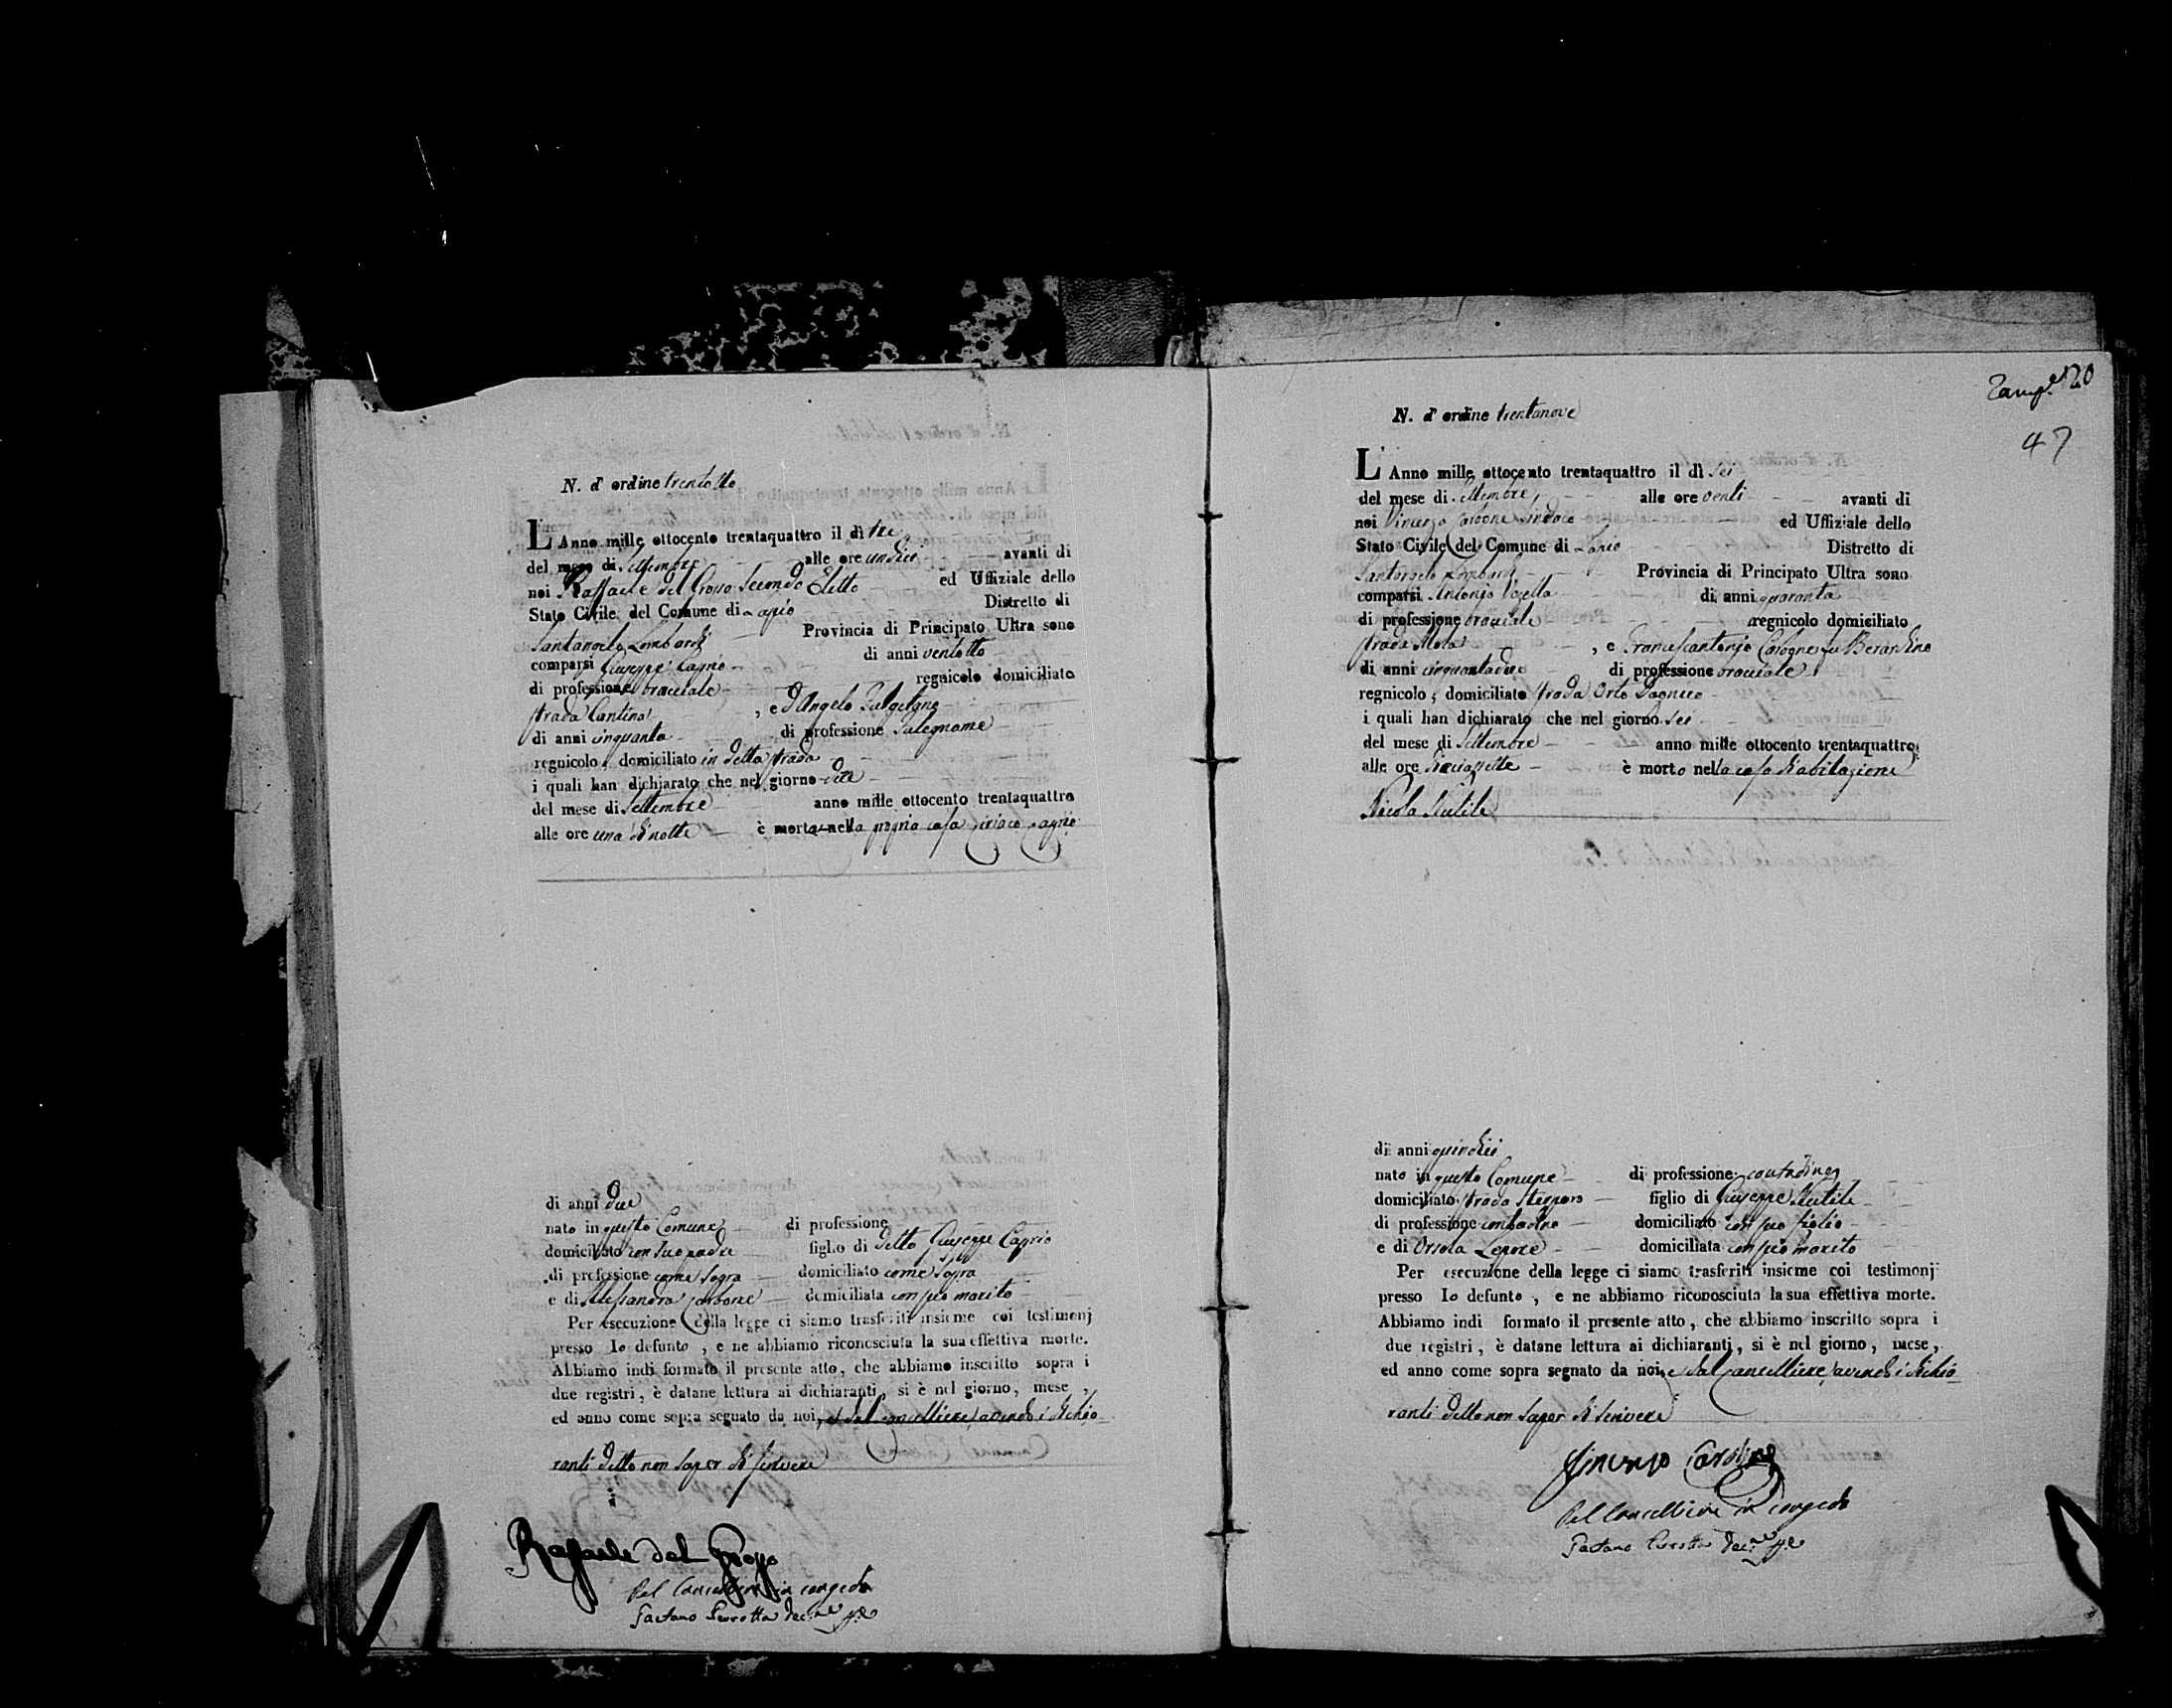 N. d' ordine trentotto
L'Anno mille ottocento trentaquattro il dì tre
del mese di Settembre alle ore undici avanti di
noi Raffaele del Grosso Secondo Eletto ed Uffiziale dello
Stato Civile del Comune di Lapio Distretto di
Santangelo Lombardi Provincia di Principato Ultra sono
comparsi Giuseppe Caprio di anni ventotto
di professione bracciale regnicolo domiciliato
strada Cantina , e D'Angelo
di anni cinquanta di professione Falegname
regnicolo, domiciliato in detta strada
i quali han dichiarato che nel giorno due
del mese di Settembre anno mille ottocento trentaquattro
alle ore una di notte è morto nella propria casa Ciriaco Caprio
di anni due
nato in questo Comune di professione
domiciliato con suo padre figlio di detto Giuseppe Caprio
di professione come sopra domiciliato come sopra
e di Alessandra Carbone domiciliata con suo marito
Per esecuzione della legge ci siamo trasferiti insieme coi testimonj
presso lo defunto , e ne abbiamo riconosciuta la sua effettiva morte.
Abbiamo indi formato il presente atto, che abbiamo inscritto sopra i
due registri, è datane lettura ai dichiaranti, si è nel giorno, mese ,
ed anno come sopra segnato da noi, e dal cancelliere, avendo i dichia
ranti detto non saper di scrivere
Raffaele del Grosso
Pel Cancelliere in congedo
Gaetano Perrotta
Zamp. 20
47
N. d' ordine trentanove
L'Anno mille ottocento trentaquattro il dì sei
del mese di Settembre, alle ore venti avanti di
noi Vincenzo Carbone Sindaco ed Uffiziale dello
Stato Civile del Comune di Lapio Distretto di
Santangelo Lombardi Provincia di Principato Ultra sono
comparsi Antonio Vosella di anni quaranta
di professione bracciale regnicolo domiciliato
strada Mola , e Francescantonio Carbone fu Berardino
di anni cinquantadue di professione bracciale
regnicolo, domiciliato strada Orto
i quali han dichiarato che nel giorno sei
del mese di Settembre anno mille ottocento trentaquattro
alle ore diciassette è morto nella casa di abitazione
Nicola Mutile
di anni quindici
nato in questo Comune di professione contadino
domiciliato strada figlio di Giuseppe Mutile
di professione contadino domiciliato con suo figlio
e di Orsola Lepore domiciliata con suo marito
Per esecuzione della legge ci siamo trasferiti insieme coi testimonj
presso lo defunto , e ne abbiamo riconosciuta la sua effettiva morte.
Abbiamo indi formato il presente atto, che abbiamo inscritto sopra i
due registri, è datane lettura ai dichiaranti, si è nel giorno, mese,
ed anno come sopra segnato da noi, e dal Cancelliere, avendo i dichia
ranti detto non saper di scrivere
Vincenzo Carbone
Pel Cancelliere in congedo
Gaetano Perrotta